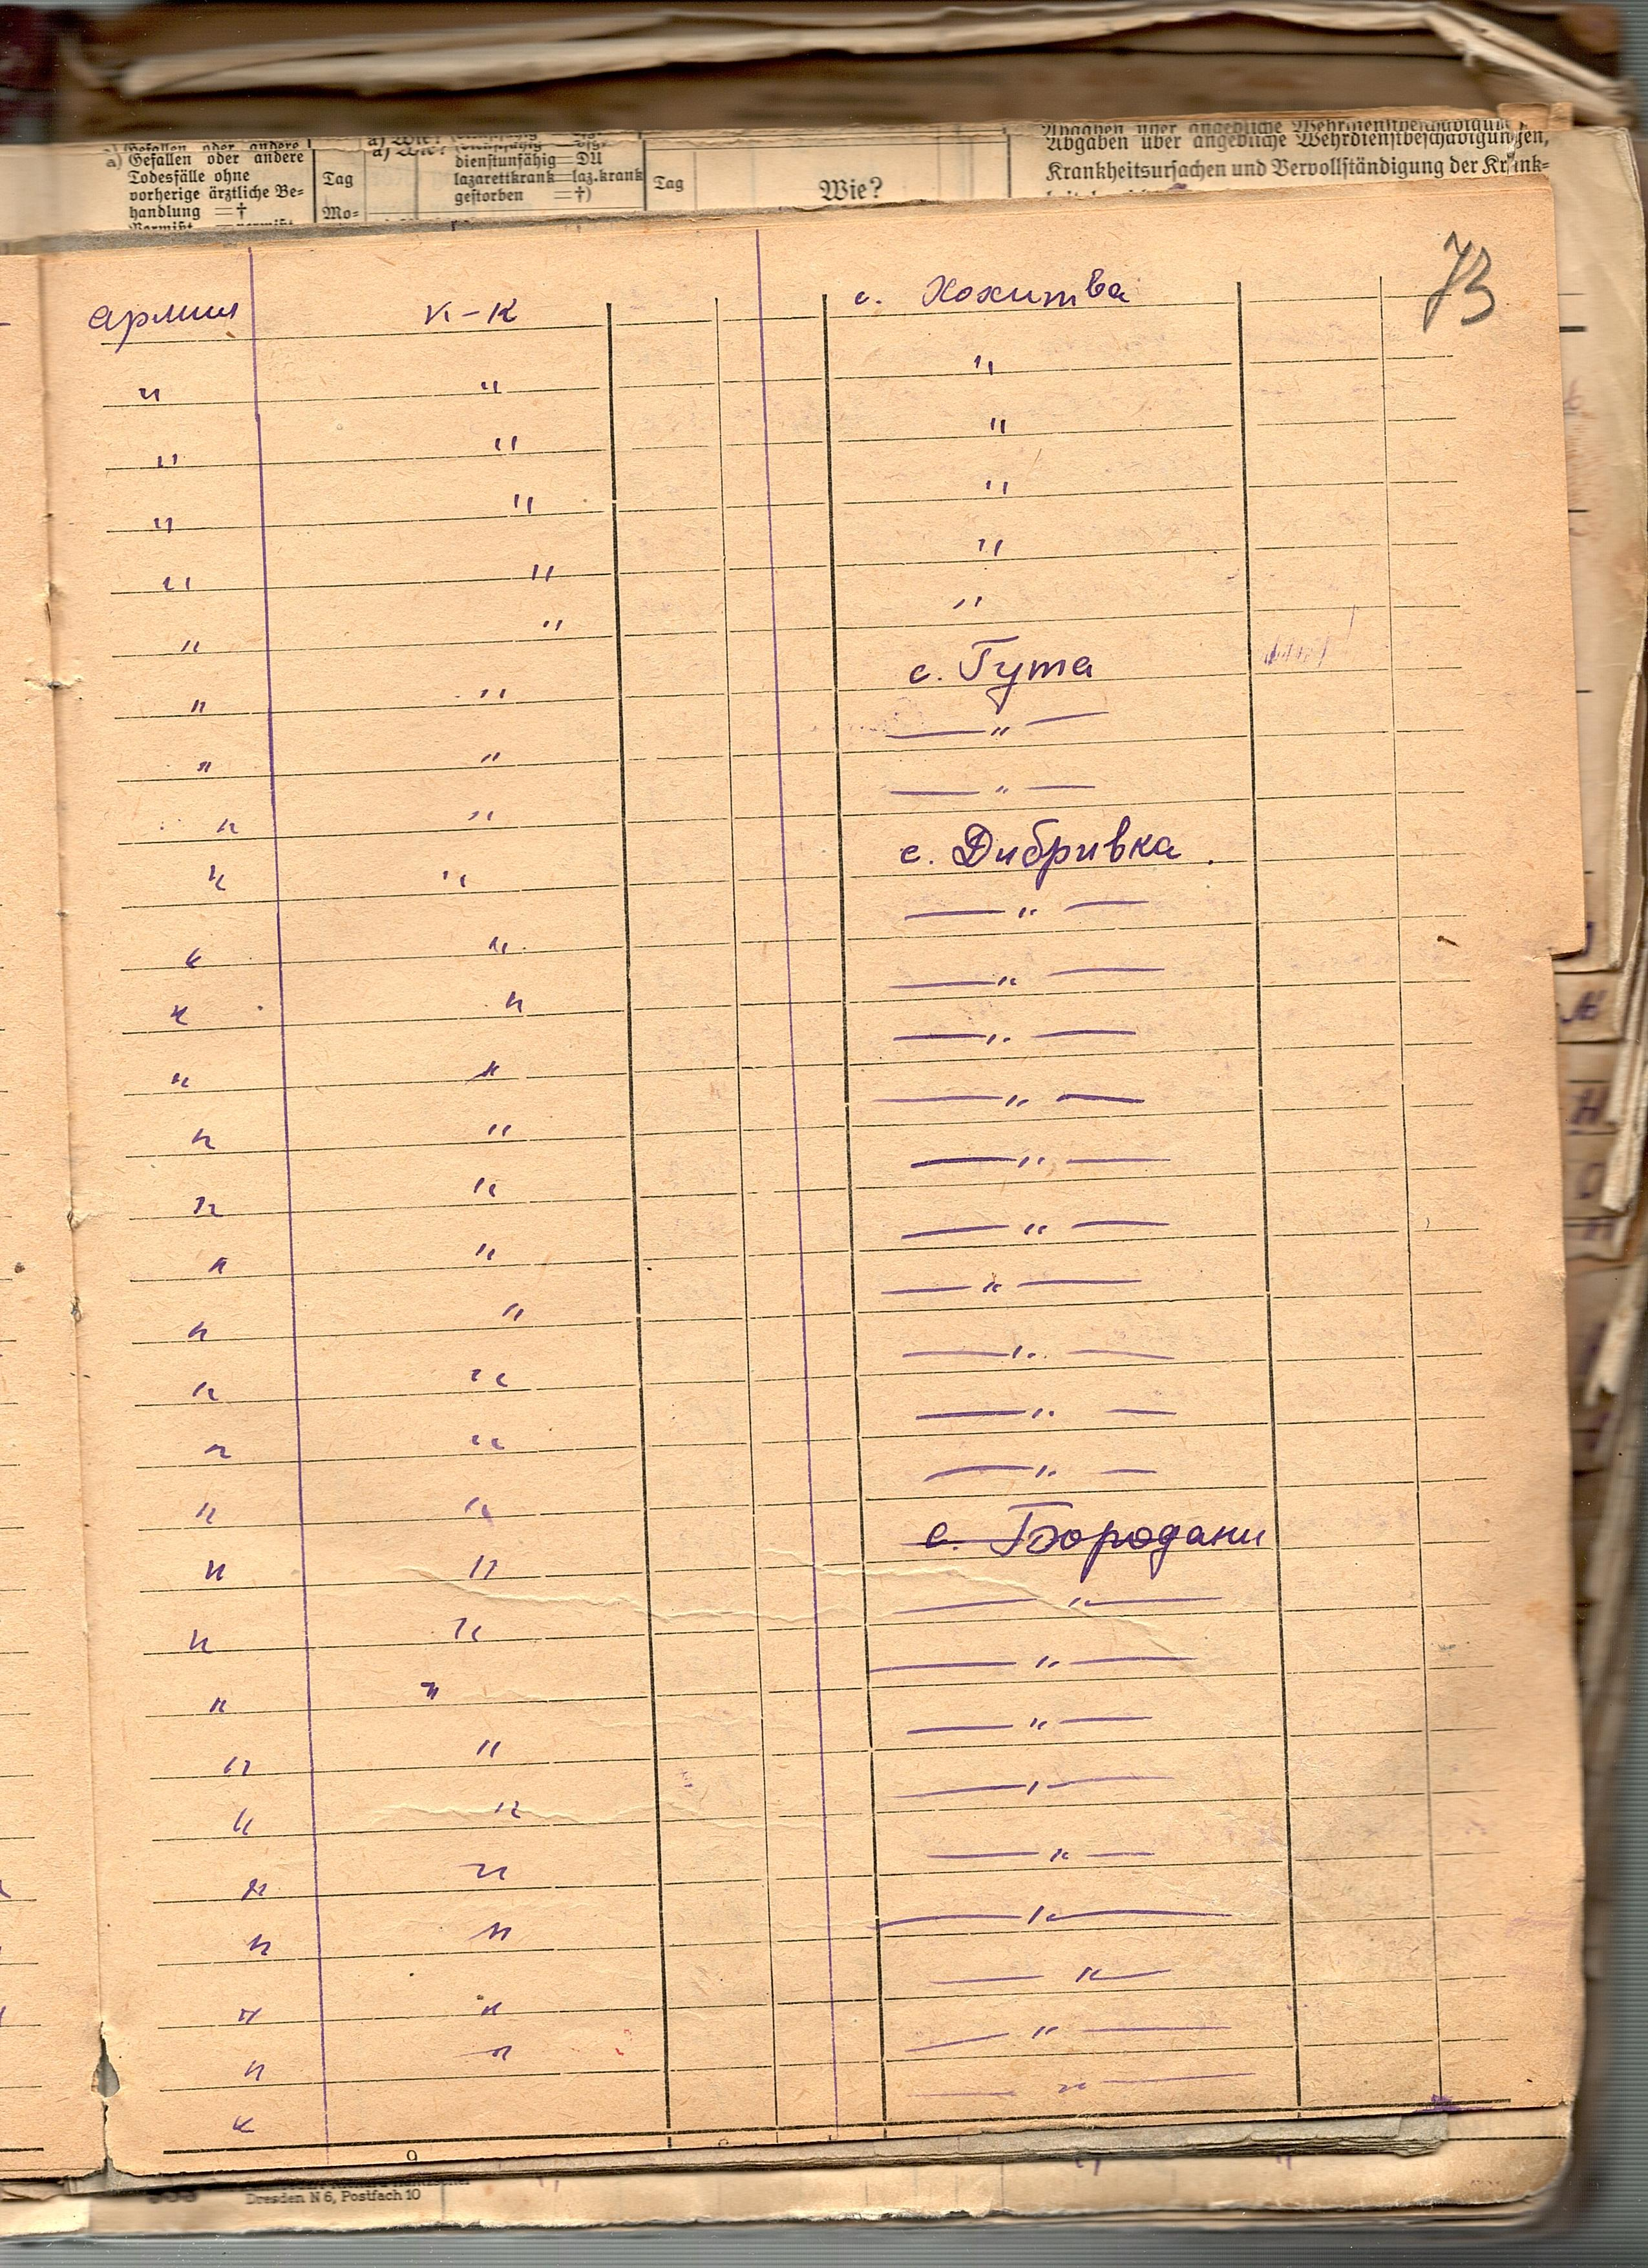 a) Gefallen oder andere
Todesfälle ohne
vorherige ärztliche Be-
handlung =†
Tag
Mo-
dienstunfähig=DU
lazarettkrank=laz.krank
gestorben =†)
Tag
Wie?
Abgaben über angebliche Wehrdienstbeschädigungen,
Krankheitsursachen und Vervollständigung der Krank-
73
армия к-к с. Хохитва
" " "
" " "
" " "
" " "
" " "
" " с. Гута
" " — " —
" " — " —
" " с. Дибривка.
" " — " —
" " — " —
" " — " —
" " — " —
" " — " —
" " — " —
" " — " —
" " — " —
" " — " —
" " — " —
" " с. Бородани
" " — " —
" " — " —
" " — " —
" " — " —
" " — " —
" " — " —
" " — " —
" " — " —
" — " —
9
Dresden N 6, Postfach 10